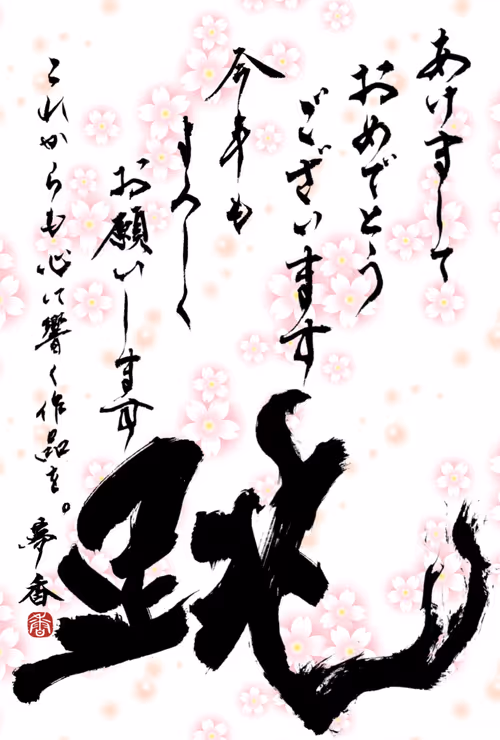 あけまして
おめでとう
ございます
今年も
よろしく
お願いします
これからも心に響く作品を。
夢香
香
跳